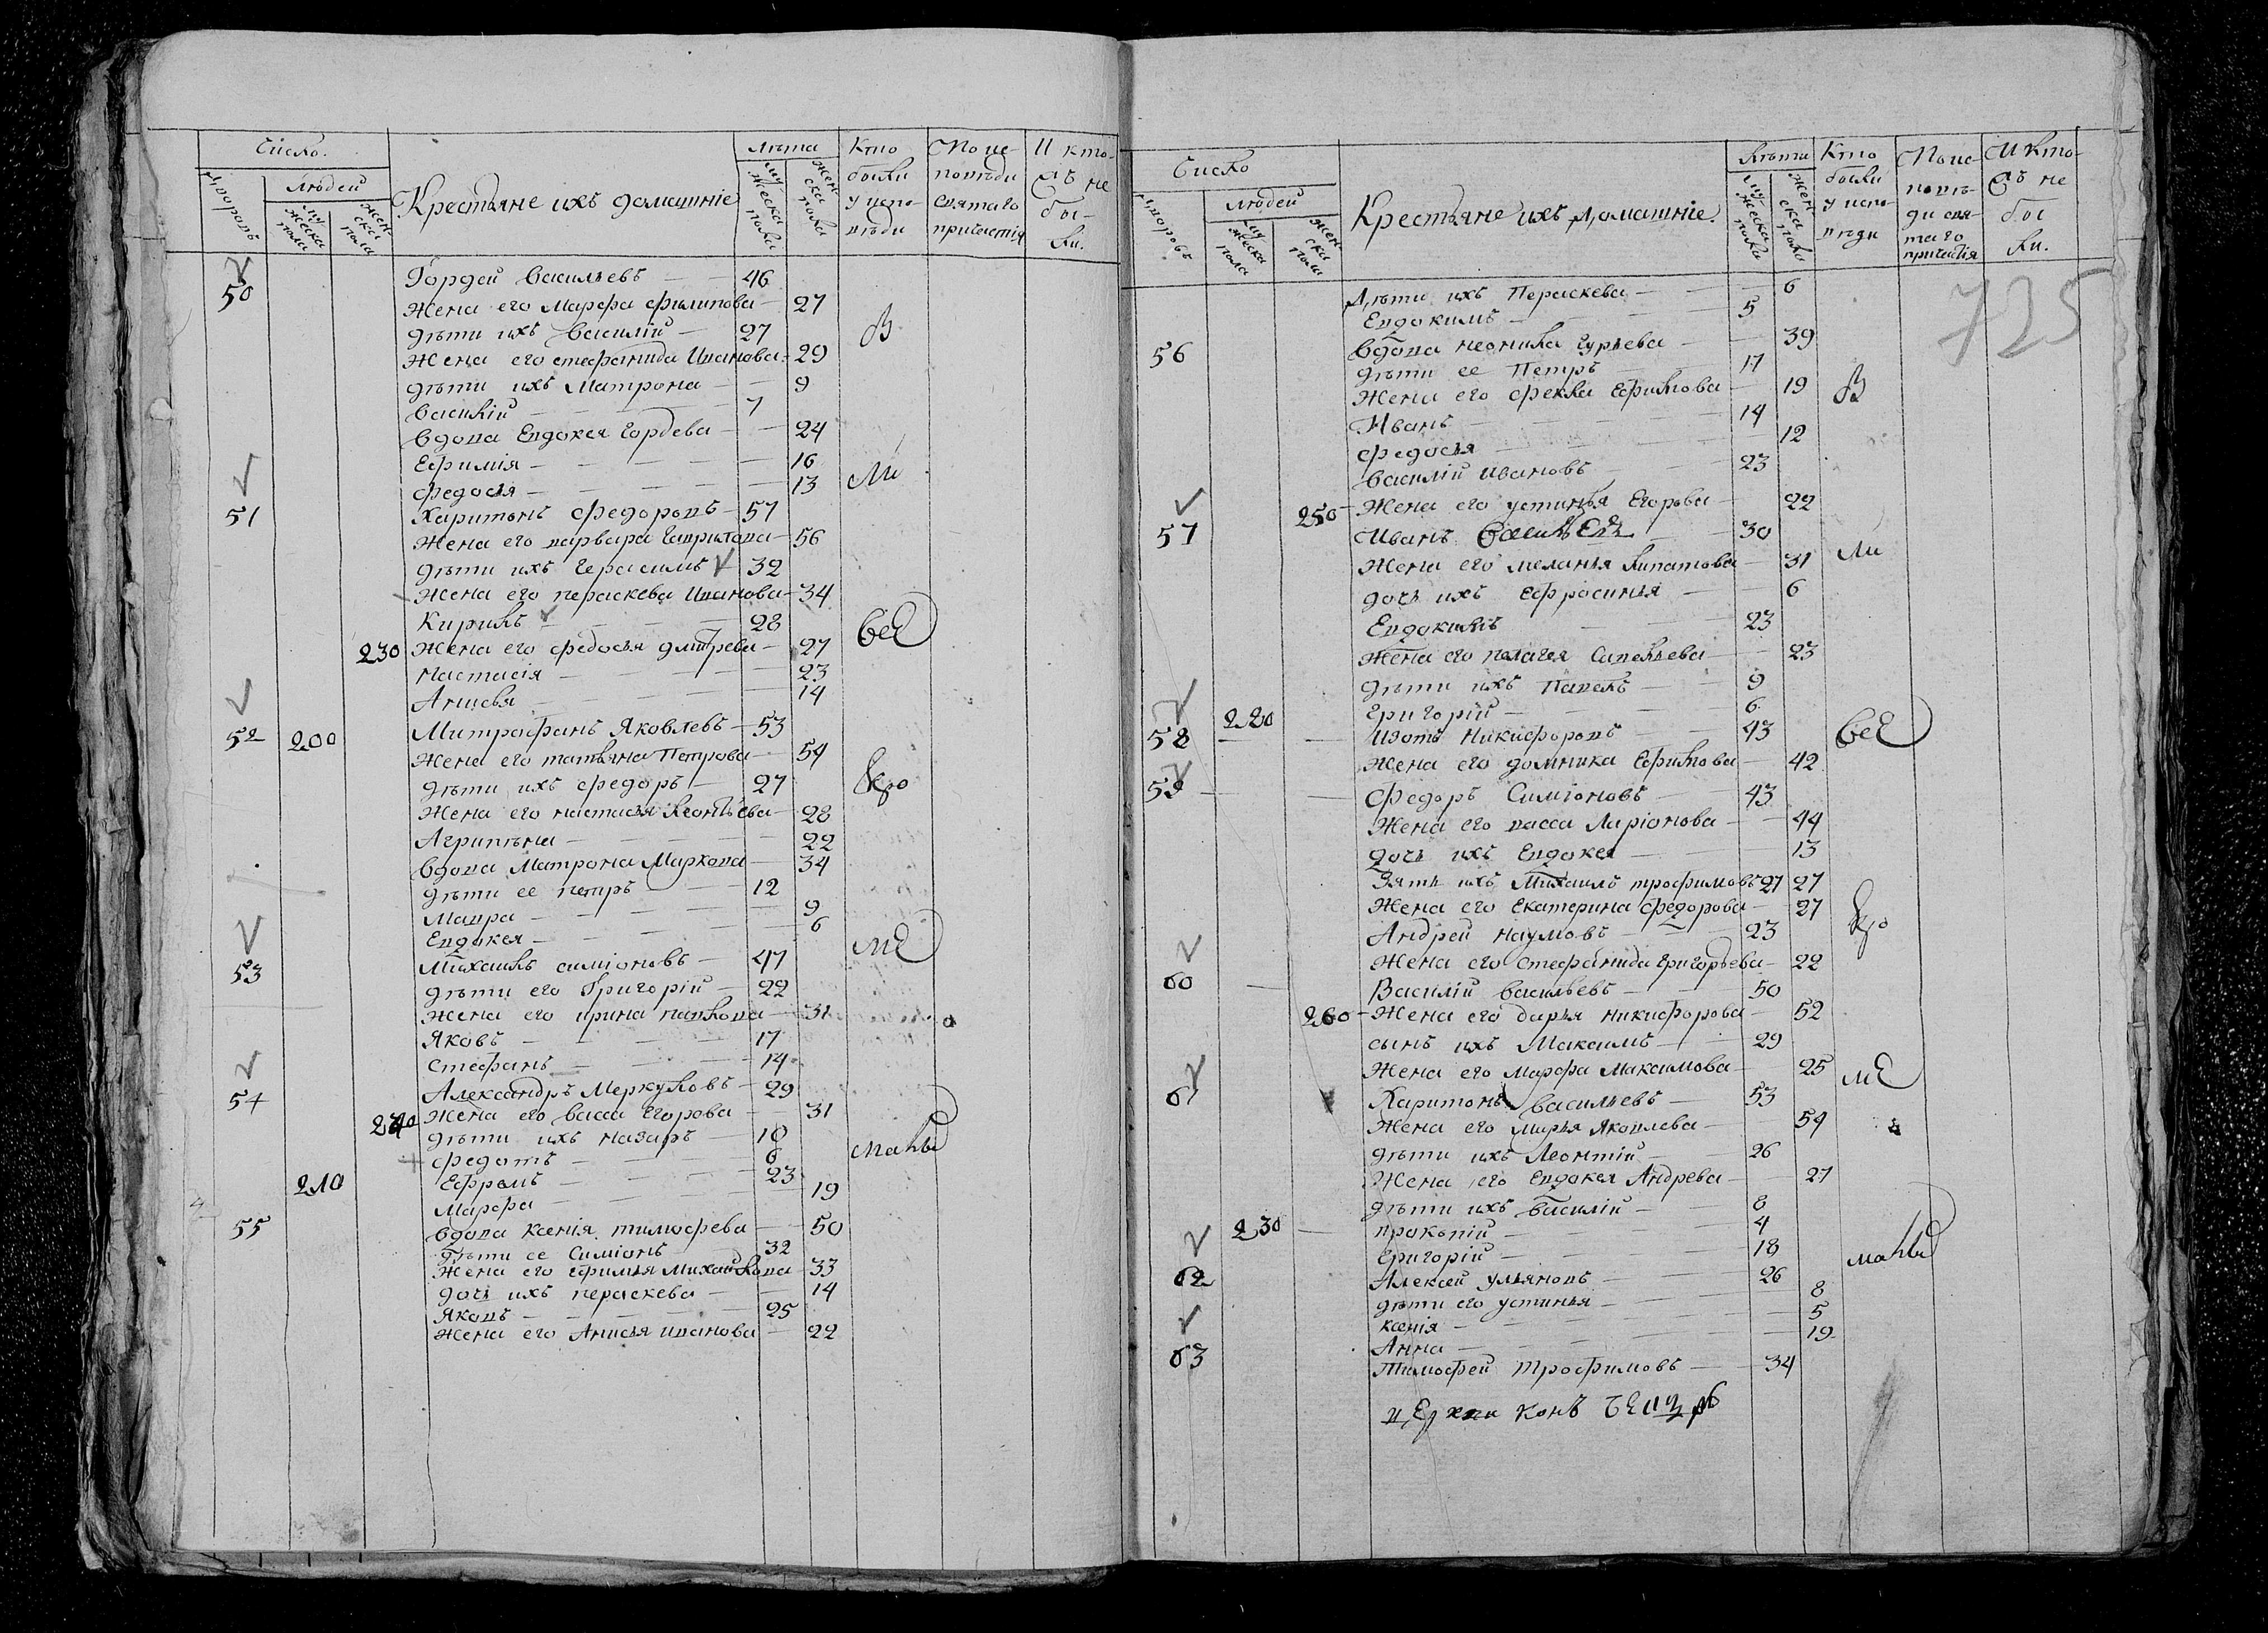 Число.
дворовъ
людей
мужеска пола
женска пола
Крестьяне ихъ домашніе
лѣта
мужеска пола
женска пола
Кто были у исповѣди
По исповѣди святаго причастія
И кто съ не были.
50 Гордей Васильевъ — 46
Жена его Марфа Филипова — 27
дѣти ихъ Василій — 27
Жена его стефанида Иванова — 29
дѣти ихъ Матрона — 9
Василій — 7
Вдова Евдокея Гордева — 24
Ефимія — 16
Федосья — 13
51 Харитонъ Федоровъ — 57
Жена его варвара Гаврилова — 56
дѣти ихъ Герасимъ 32
Жена его параскева Иванова — 34
Кирилъ — 28
230 Жена его федосья дмитрева — 27
Настасія — 23
Анисья — 14
52 200 Митрофанъ Яковлевъ — 53
Жена его татьяна Петрова — 54
дѣти ихъ федоръ — 27
Жена его настасья Леонтьева — 28
Агрипѣна — 22
Вдова Матрона Маркова — 34
дѣти ее петръ — 12
Мавра — 9
Евдокея — 6
53 Михаилъ симіоновъ — 47
дѣти его Григорій — 22
Жена его ирина павлова — 31
Яковъ — 17
стефанъ — 14
54 Александръ Меркуловъ — 29
240 Жена его васса Егорова — 31
дѣти ихъ назаръ — 10
федотъ — 6
210 Ефремъ — 23
Марфа — 19
55 Вдова Ксенія тимофева — 50
дѣти ее Симіонъ — 32
Жена его ефимья Михайлова — 33
дочь ихъ пераскева — 14
Яковъ — 25
Жена его Анисья иванова — 22
В
Ли
все
кро
ме
малы
Число
дворовъ
людей
мужеска пола
женска пола
Крестьяне ихъ домашніе.
лѣта
мужеска пола
женска пола
Кто были у исповѣди
По исповѣди святаго причастія
И кто съ не были.
725
Дѣти ихъ Пераскева — 6
Евдокимъ — 5
56 Вдова неонила гурьева — 39
дѣти ее Петръ — 17
Жена его фекла Ефимова — 19
Иванъ — 14
Федосья — 12
Василій ивановъ — 23
250 Жена его устинья Егорьва — 22
57 Иванъ Васильевъ — 30
Жена его меланья Липатова — 31
дочь ихъ Ефросинья — 6
Евдокимъ 23
Жена его пелагея Савельева — 23
дѣти ихъ Павелъ — 9
220 Григорій — 6
58 Изотъ Никифоровъ — 43
Жена его домника Ефимова — 42
59 Федоръ Симіоновъ — 43
Жена его васса Ларіонова — 44
дочь ихъ Евдокея — 13
Зять ихъ Михаилъ трофимовъ 27 27
Жена его Екатерина федорова — 27
Андрей наумовъ — 23
Жена его стефанида григорьева — 22
60 Василій васильевъ — 50
260 Жена его дарья никифорова — 52
сынъ ихъ Максимъ — 29
Жена его Марфа Максимова — 25
61 Харитонъ васильевъ — 53
Жена его Марья Яковлева — 54
дѣти ихъ Леонтій — 26
Жена его Евдокея Андрева — 27
дѣти ихъ Василій — 8
230 прокопій — 4
Григорій — 18
62 Алексей ульяновъ — 26
дѣти его устинья — 8
ксенія — 5
Анна — 19
63 Тимофей трофимовъ — 34
В
ли
все
кро
ме
малы